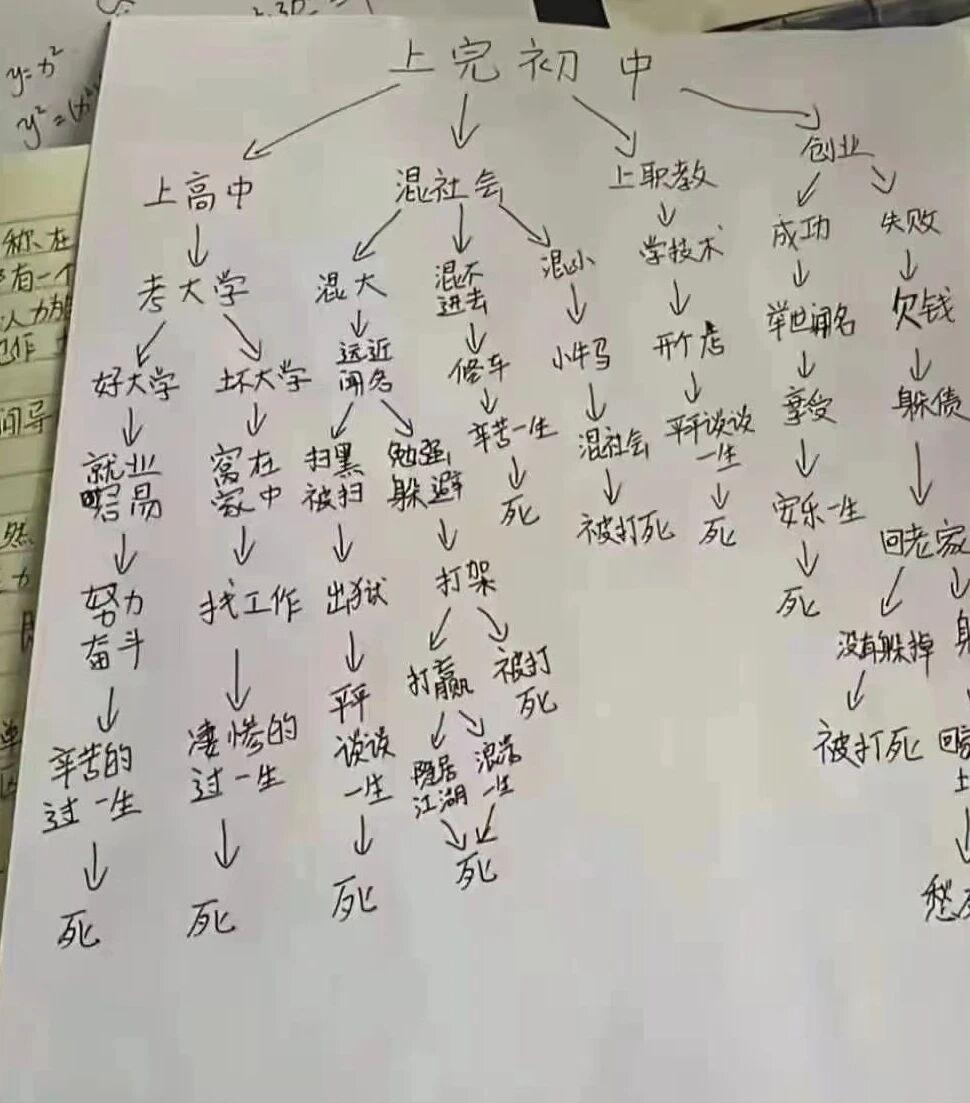 y=x²
y²=
上完初中
上高中
混社会
上职教
创业
考大学
混大
混不
进去
混小
学技术
成功
失败
好大学
坏大学
远近
闻名
修车
小牛马
开个店
举世闻名
欠钱
就业
容易
窝在
家中
扫黑
被扫
勉强
躲避
辛苦一生
混社会
平平谈谈
一生
享受
躲债
努力
奋斗
找工作
出狱
打架
死
被打死
死
安乐一生
回老家
辛苦的
过一生
凄惨的
过一生
平平
谈谈
一生
打赢
被打
死
死
没有躲掉
隐居
江湖
浪荡
一生
被打死
死
死
死
死
称、在
有一个
人力为
作
间导
然
力
单